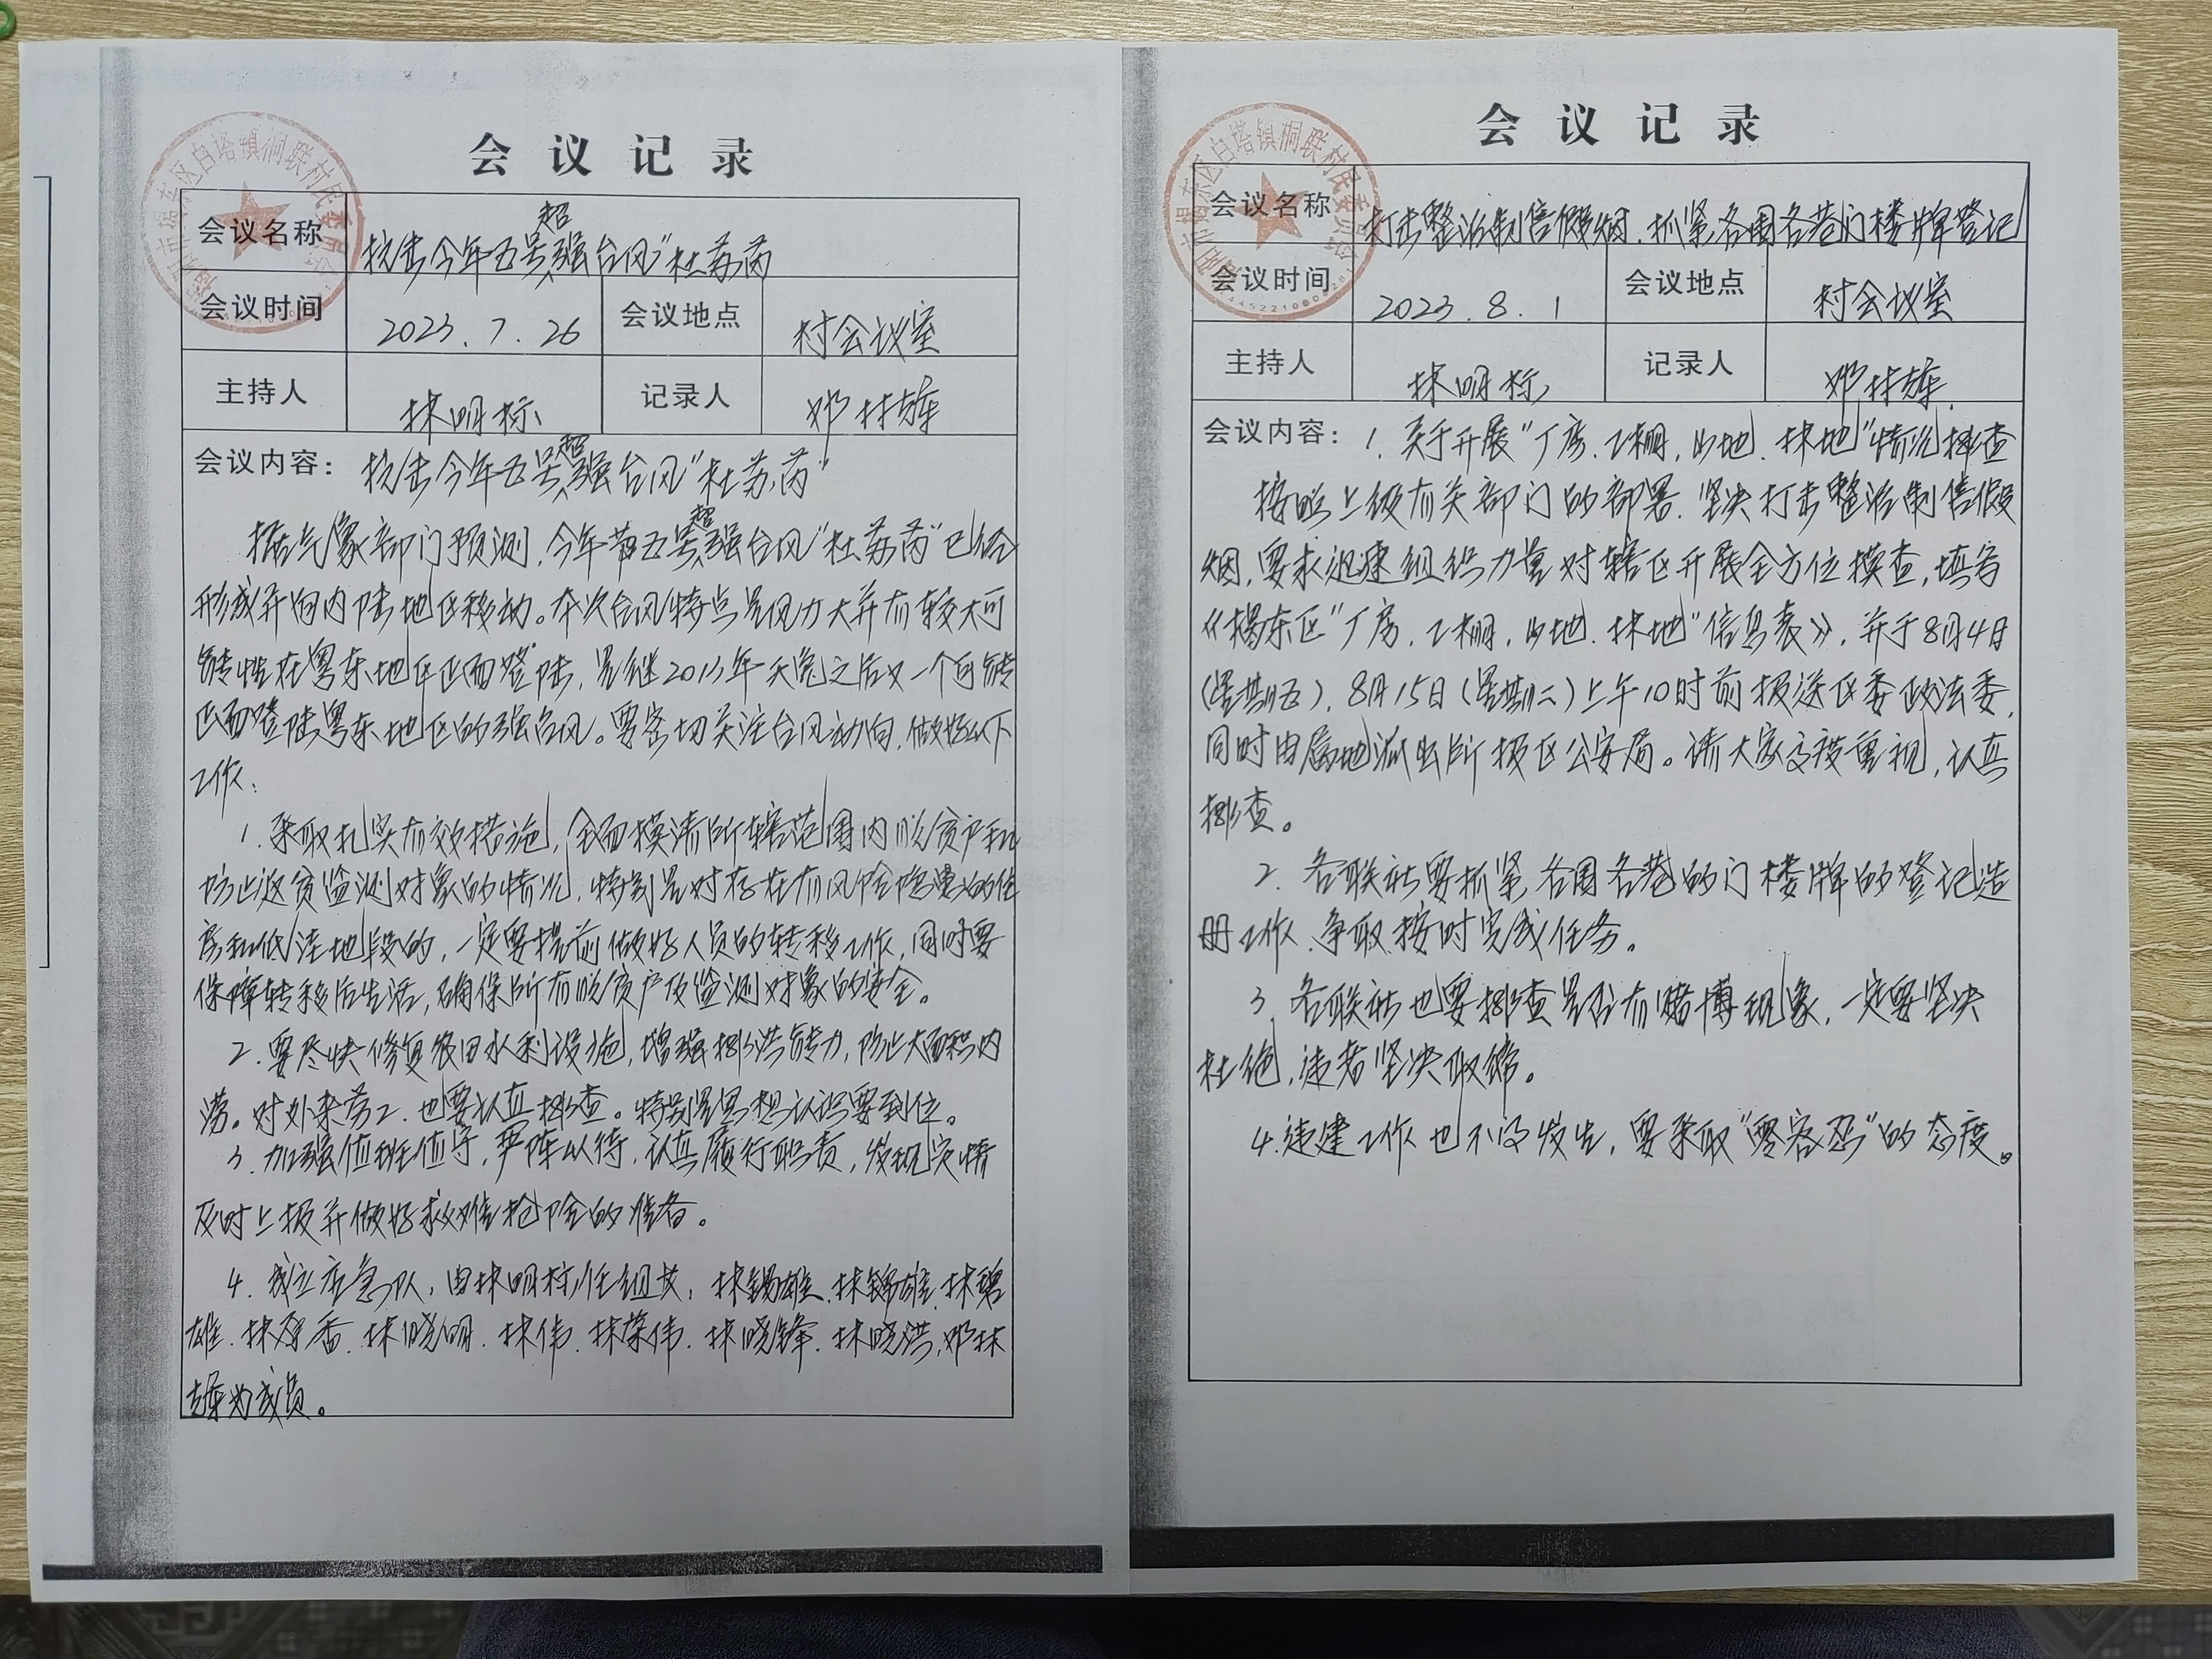 会议记录
会议名称 抗击今年五号超强台风“杜苏芮
会议时间 2023.7.26 会议地点 村会议室
主持人 林明标 记录人 邓林
会议内容: 抗击今年五号超强台风“杜苏芮”
据气象部门预测,今年第五号超强台风“杜苏芮”已经
形成并向内陆地区移动。本次台风特点是风力大并有较大可
能性在粤东地区正面登陆,是继2013年天兔之后又一个可能
正面登陆粤东地区的强台风。要密切关注台风动向,做好以下
工作:
1.采取扎实有效措施,全面摸清所辖范围内脱贫户和
防止返贫监测对象的情况,特别是对存在有风险隐患的住
房和低洼地段的,一定要提前做好人员的转移工作,同时要
保障转移后生活,确保所有脱贫户及监测对象的安全。
2.要尽快修复农田水利设施,增强排洪能力,防止大面积内
涝。对外来劳工.也要认真排查。特别是思想认识要到位。
3.加强值班值守,严阵以待,认真履行职责,发现灾情
及时上报并做好救难抢险的准备。
4.成立应急队,由林明标任组长,林锡雄.林锦雄.林碧
雄.林 香.林晓明.林伟.林荣伟.林晓锋.林晓洪,邓林
为成员。
揭阳市揭东区白塔镇桐联村民委员会
会议记录
会议名称 打击整治制售假烟.抓紧各围各巷门楼牌登记
会议时间 2023.8.1 会议地点 村会议室
主持人 林明标 记录人 邓林
会议内容: 1.关于开展“厂房.工棚,山地.林地”情况排查
按照上级有关部门的部署.坚决打击整治制售假
烟,要求迅速组织力量对辖区开展全方位摸查,填写
《揭东区“厂房.工棚,山地.林地”信息表》,并于8月4日
(星期五),8月15日(星期二)上午10时前报送区委政法委,
同时由属地派出所报区公安局。请大家高度重视,认真
排查。
2.各联社要抓紧各围各巷的门楼牌的登记造
册工作.争取按时完成任务。
3.各联社也要排查是否有赌博现象,一定要坚决
杜绝,违者坚决取缔。
4.违建工作也不得发生,要采取“零容忍”的态度。
揭阳市揭东区白塔镇桐联村民委员会